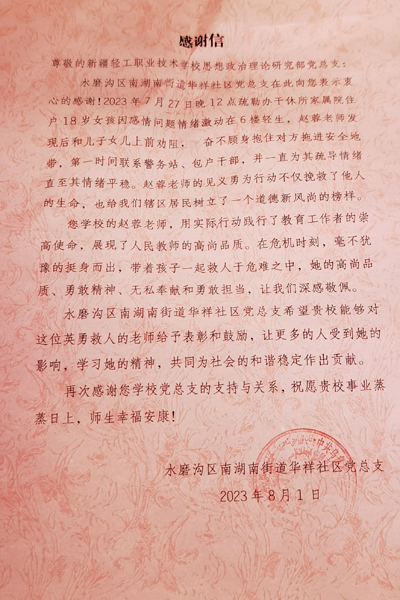 感谢信
尊敬的新疆轻工职业技术学校思想政治理论研究部党总支：
水磨沟区南湖南街道华祥社区党总支在此向您表示衷
心的感谢！2023年7月27日晚12点疏勒办干休所家属院住
户18岁女孩因感情问题情绪激动在6楼轻生，赵蓉老师发
现后和儿子女儿上前劝阻， 奋不顾身抱住对方拖进安全地
带，第一时间联系警务站、包户干部，并一直为其疏导情绪
直至其情绪平稳。赵蓉老师的见义勇为行动不仅挽救了他人
的生命，也给我们辖区居民树立了一个道德新风尚的榜样。
您学校的赵蓉老师，用实际行动践行了教育工作者的崇
高使命，展现了人民教师的高尚品质。在危机时刻，毫不犹
豫的挺身而出，带着孩子一起救人于危难之中，她的高尚品
质、勇敢精神、无私奉献和勇敢担当，让我们深感敬佩。
水磨沟区南湖南街道华祥社区党总支希望贵校能够对
这位英勇救人的老师给予表彰和鼓励，让更多的人受到她的
影响，学习她的精神，共同为社会的和谐稳定作出贡献。
再次感谢您学校党总支的支持与关系，祝愿贵校事业蒸
蒸日上，师生幸福安康！
水磨沟区南湖南街道华祥社区党总支
2023年8月1日